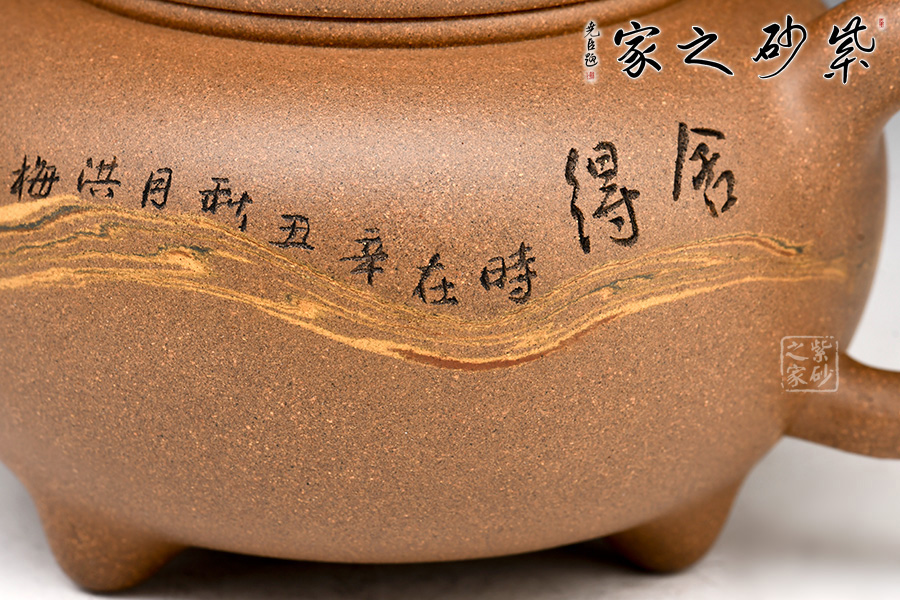 紫砂之家
尧臣题
舍得
時在辛丑秋月洪梅
紫砂之家